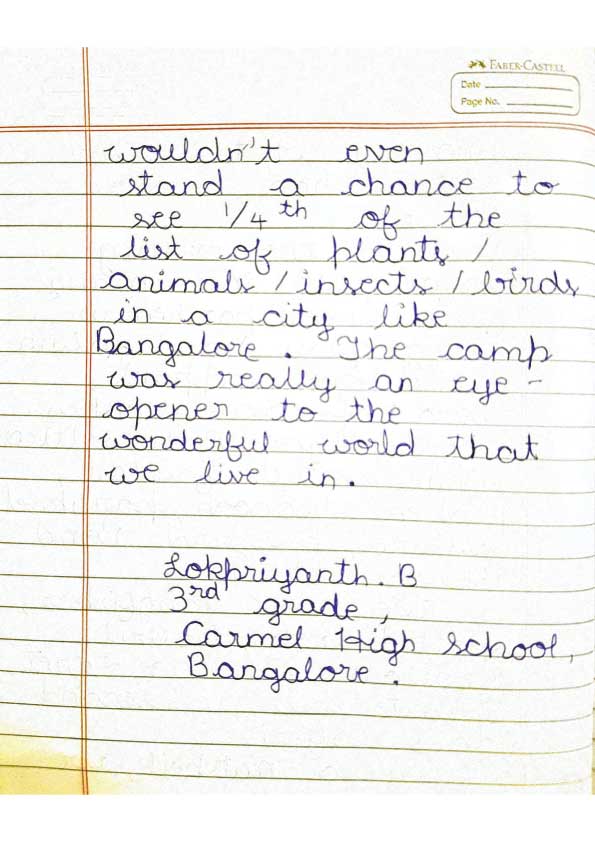 FABER-CASTELL
Date
Page No.
wouldn't even
stand a chance to
see 1/4th of the
list of plants /
animals / insects / birds
in a city like
Bangalore. The camp
was really an eye-
opener to the
wonderful world that
we live in.
Lokpriyanth. B
3rd grade,
Carmel High school,
Bangalore.